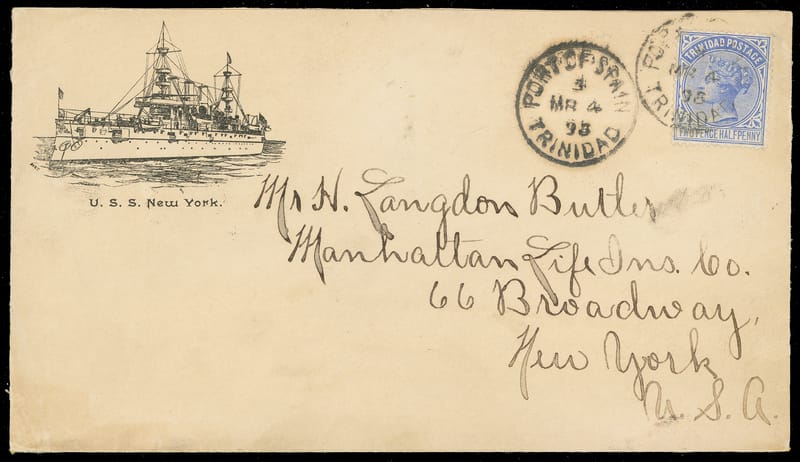 U. S. S. New York.
PORT OF SPAIN
3
MR 4
95
TRINIDAD
PORT
MR 4
95
TRINIDAD
TRINIDAD POSTAGE
TWO PENCE HALFPENNY
Mr H. Langdon Butler
Manhattan Life Ins. Co.
66 Broadway,
New York
U. S. A.